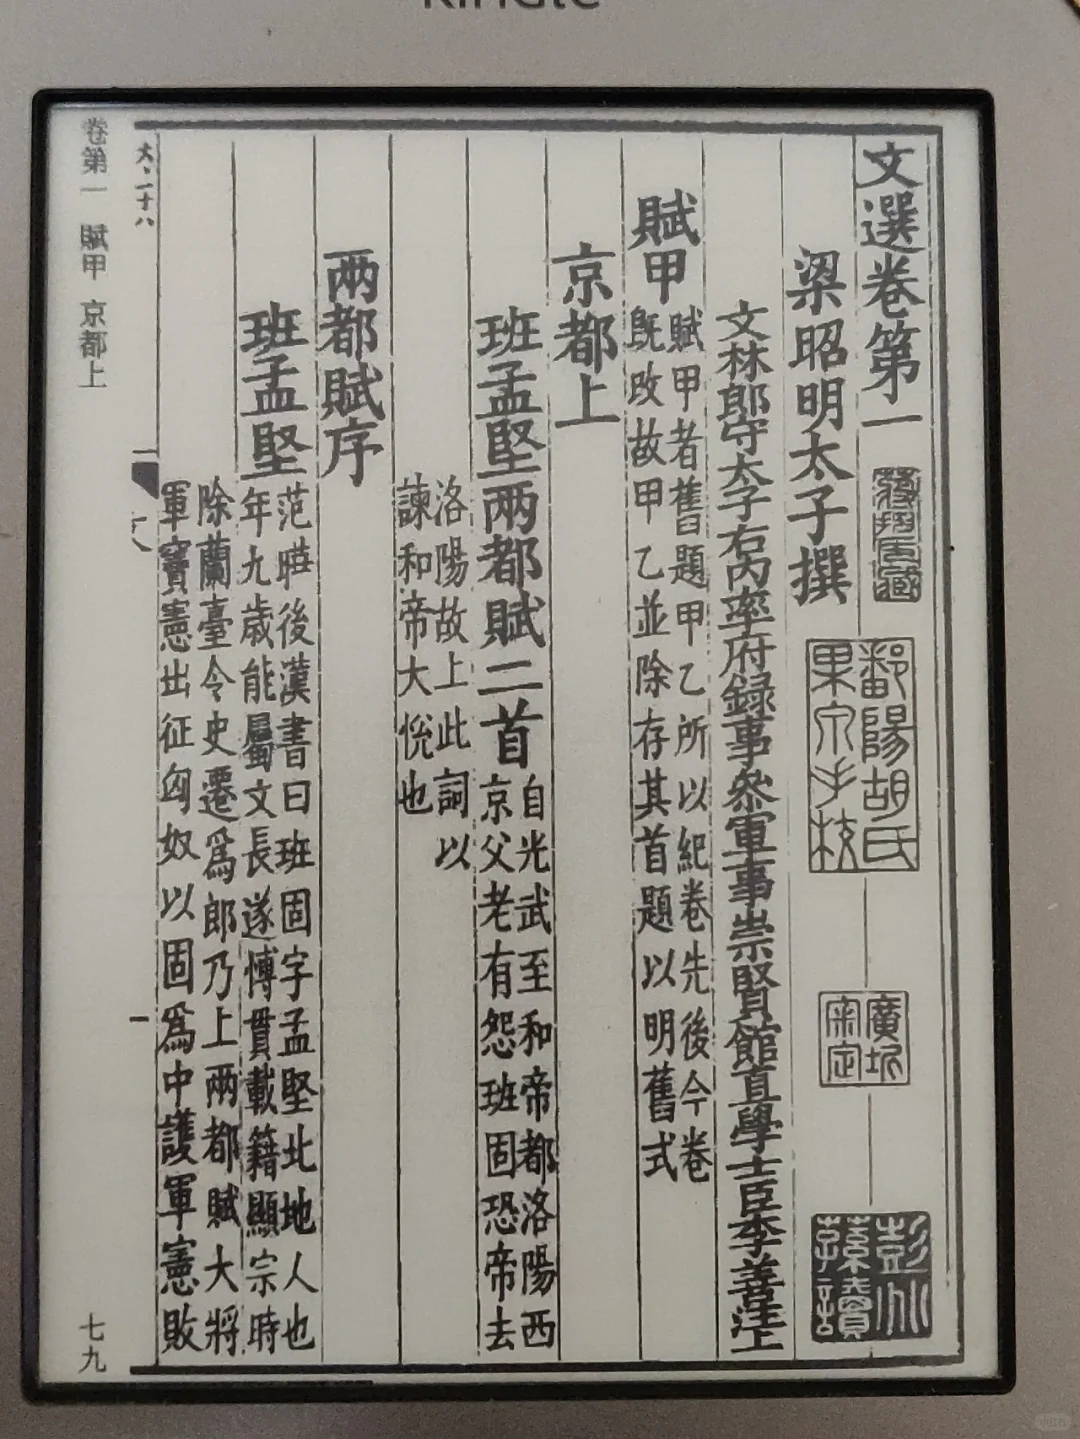 文選卷第一
梁昭明太子撰
文林郎守太子右內率府録事叅軍事崇賢館直學士臣李善注上
賦甲
賦甲者舊題甲乙所以紀卷先後今卷
旣改故甲乙並除存其首題以明舊式
京都上
班孟堅兩都賦二首
自光武至和帝都洛陽西
京父老有怨班固恐帝去
洛陽故上此詞以
諫和帝大恱也
兩都賦序
班孟堅
范曄後漢書曰班固字孟堅北地人也
年九歲能屬文長遂博貫載籍顯宗時
除蘭臺令史遷爲郎乃上兩都賦大將
軍竇憲出征匈奴以固爲中護軍憲敗
鄱陽胡氏
果泉手校
卷第一 賦甲 京都上
七九